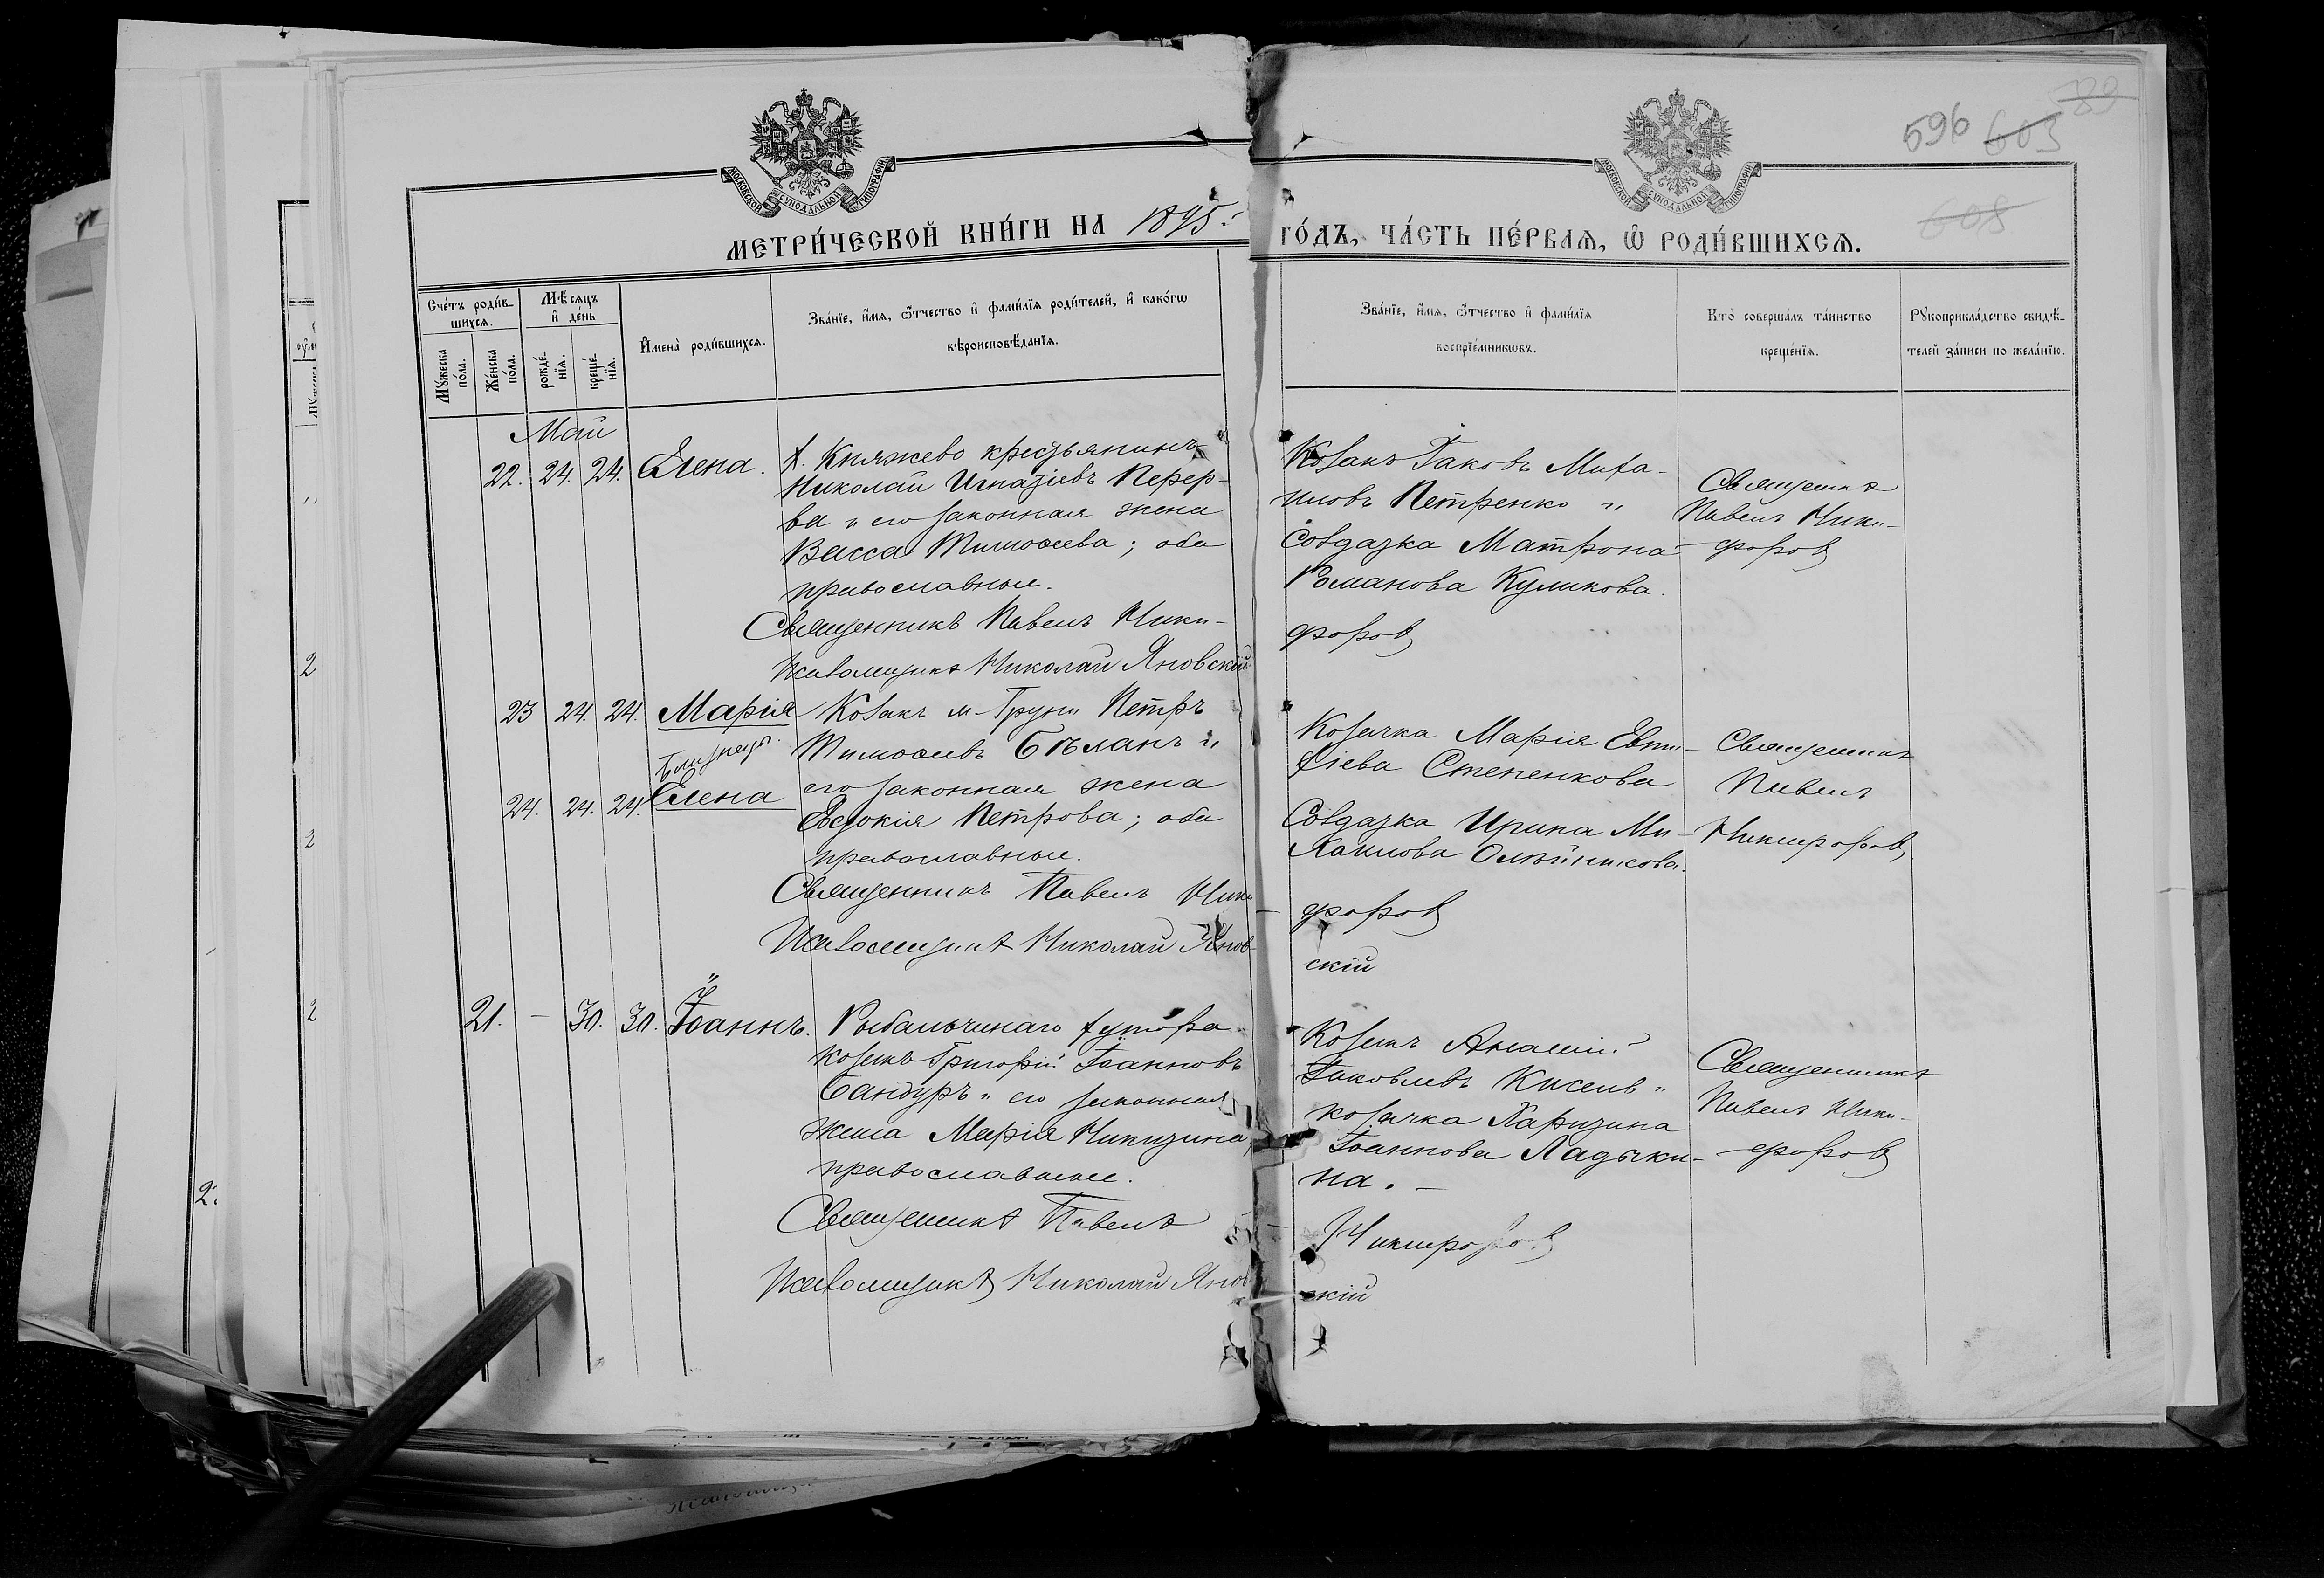 596 603 89
608
МОСКОВСКОЙ СѴНОДАЛЬНОЙ ТИПОГРАФІИ
МОСКОВСКОЙ СѴНОДАЛЬНОЙ ТИПОГРАФІИ
МЕТРИ́ЧЕСКОЙ КНИ́ГИ НА 1895 ГО́ДЪ, ЧА́СТЬ ПЕ́РВАЯ, Ѿ РОДИ́ВШИХСЯ.
Сче́тъ роди́в-
шихся.
Мꙋ́жеска по́ла.
Же́нска по́ла.
Мѣ́сяцъ и҆ де́нь
рожде́-нїя.
креще́-нїя.
И҆мена̀ роди́вшихся.
Зва́нїе, и҆́мя, ѻ҆́тчество и҆ фами́лїя роди́телей, и҆ како́гѡ
вѣроисповѣ́данїя.
Зва́нїе, и҆́мя, ѻ҆́тчество и҆ фами́лїя
воспрїе́мникѡвъ.
Кто̀ соверша́лъ та́инство
креще́нїя.
Рꙋкоприкла́дство свидѣ́-
телей за́писи по жела́нїю.
Май
22. 24. 24. Елена.
х. Княжево крестьянинъ
Николай Игнатіевъ Перер-
ва и его законная жена
Васса Тимоѳеева; оба
православные.
Козакъ Іаковъ Миха-
иловъ Петренко и
Солдатка Матрона
Романова Куликова.
Священникъ
Павелъ Ники-
форовъ
Священникъ Павелъ Ники-
форовъ
Псаломщикъ Николай Яновскій
23 24. 24. Марія
Близнецы.
24. 24. 24. Елена
Козакъ м. Груни Петръ
Тимоѳеевъ Бѣланъ и
его законная жена
Евдокія Петрова; оба
православные.
Козачка Марія Евти-
хіева Степенкова
Солдатка Ирина Ми-
хаилова Олѣйникова.
Священникъ
Павелъ
Никифоровъ
Священникъ Павелъ Ники-
форовъ
Псаломщикъ Николай Янов-
скій
21. — 30. 30. Іоаннъ.
Рыбальчинаго хутора
козакъ Григорій Іоанновъ
Бандуръ и его законная
жена Марія Никитина,
православные.
Козакъ
Іаковлевъ Киселъ и
козачка Харитина
Іоаннова Ладыки-
на. —
Священникъ
Павелъ Ники-
форовъ
Священникъ Павелъ
Никифоровъ
Псаломщикъ Николай Янов
скій